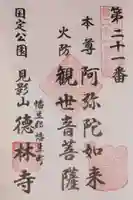 第二十一番
本尊阿弥陀如来
火防観世音菩薩
幡豆郡幡豆町
国定公園見影山徳林寺